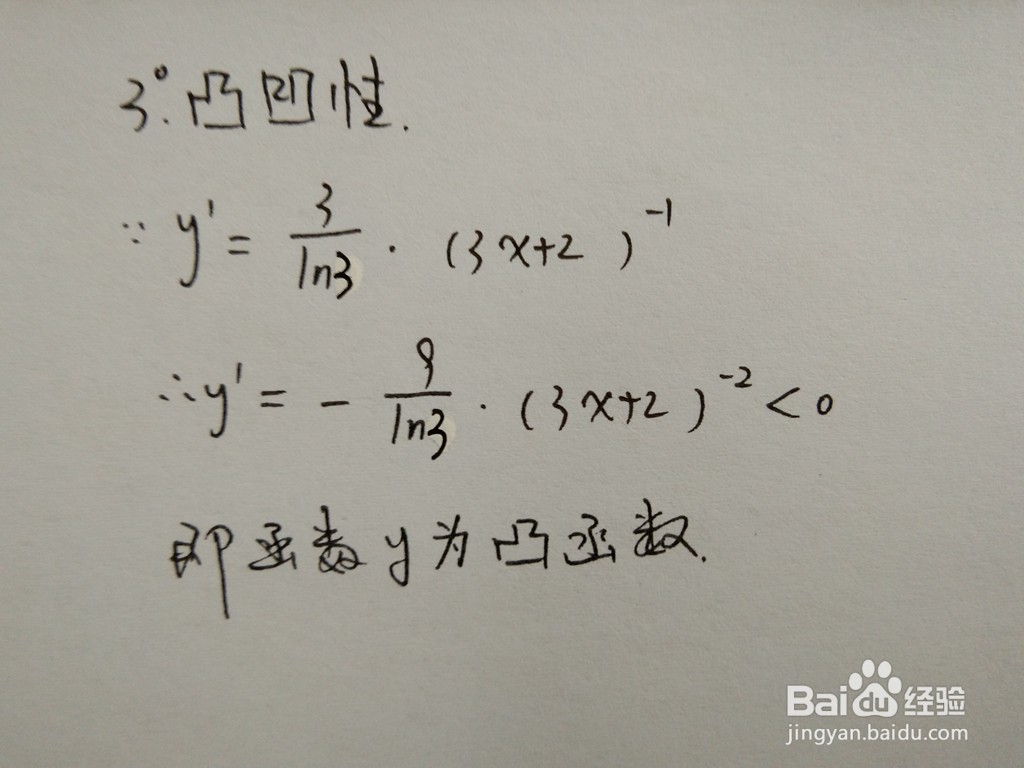 3°. 凸凹性.
∵ y' = 3/ln3 · (3x+2)⁻¹
∴ y' = - 9/ln3 · (3x+2)⁻² < 0
即函数y为凸函数.
Baidu经验
jingyan.baidu.com